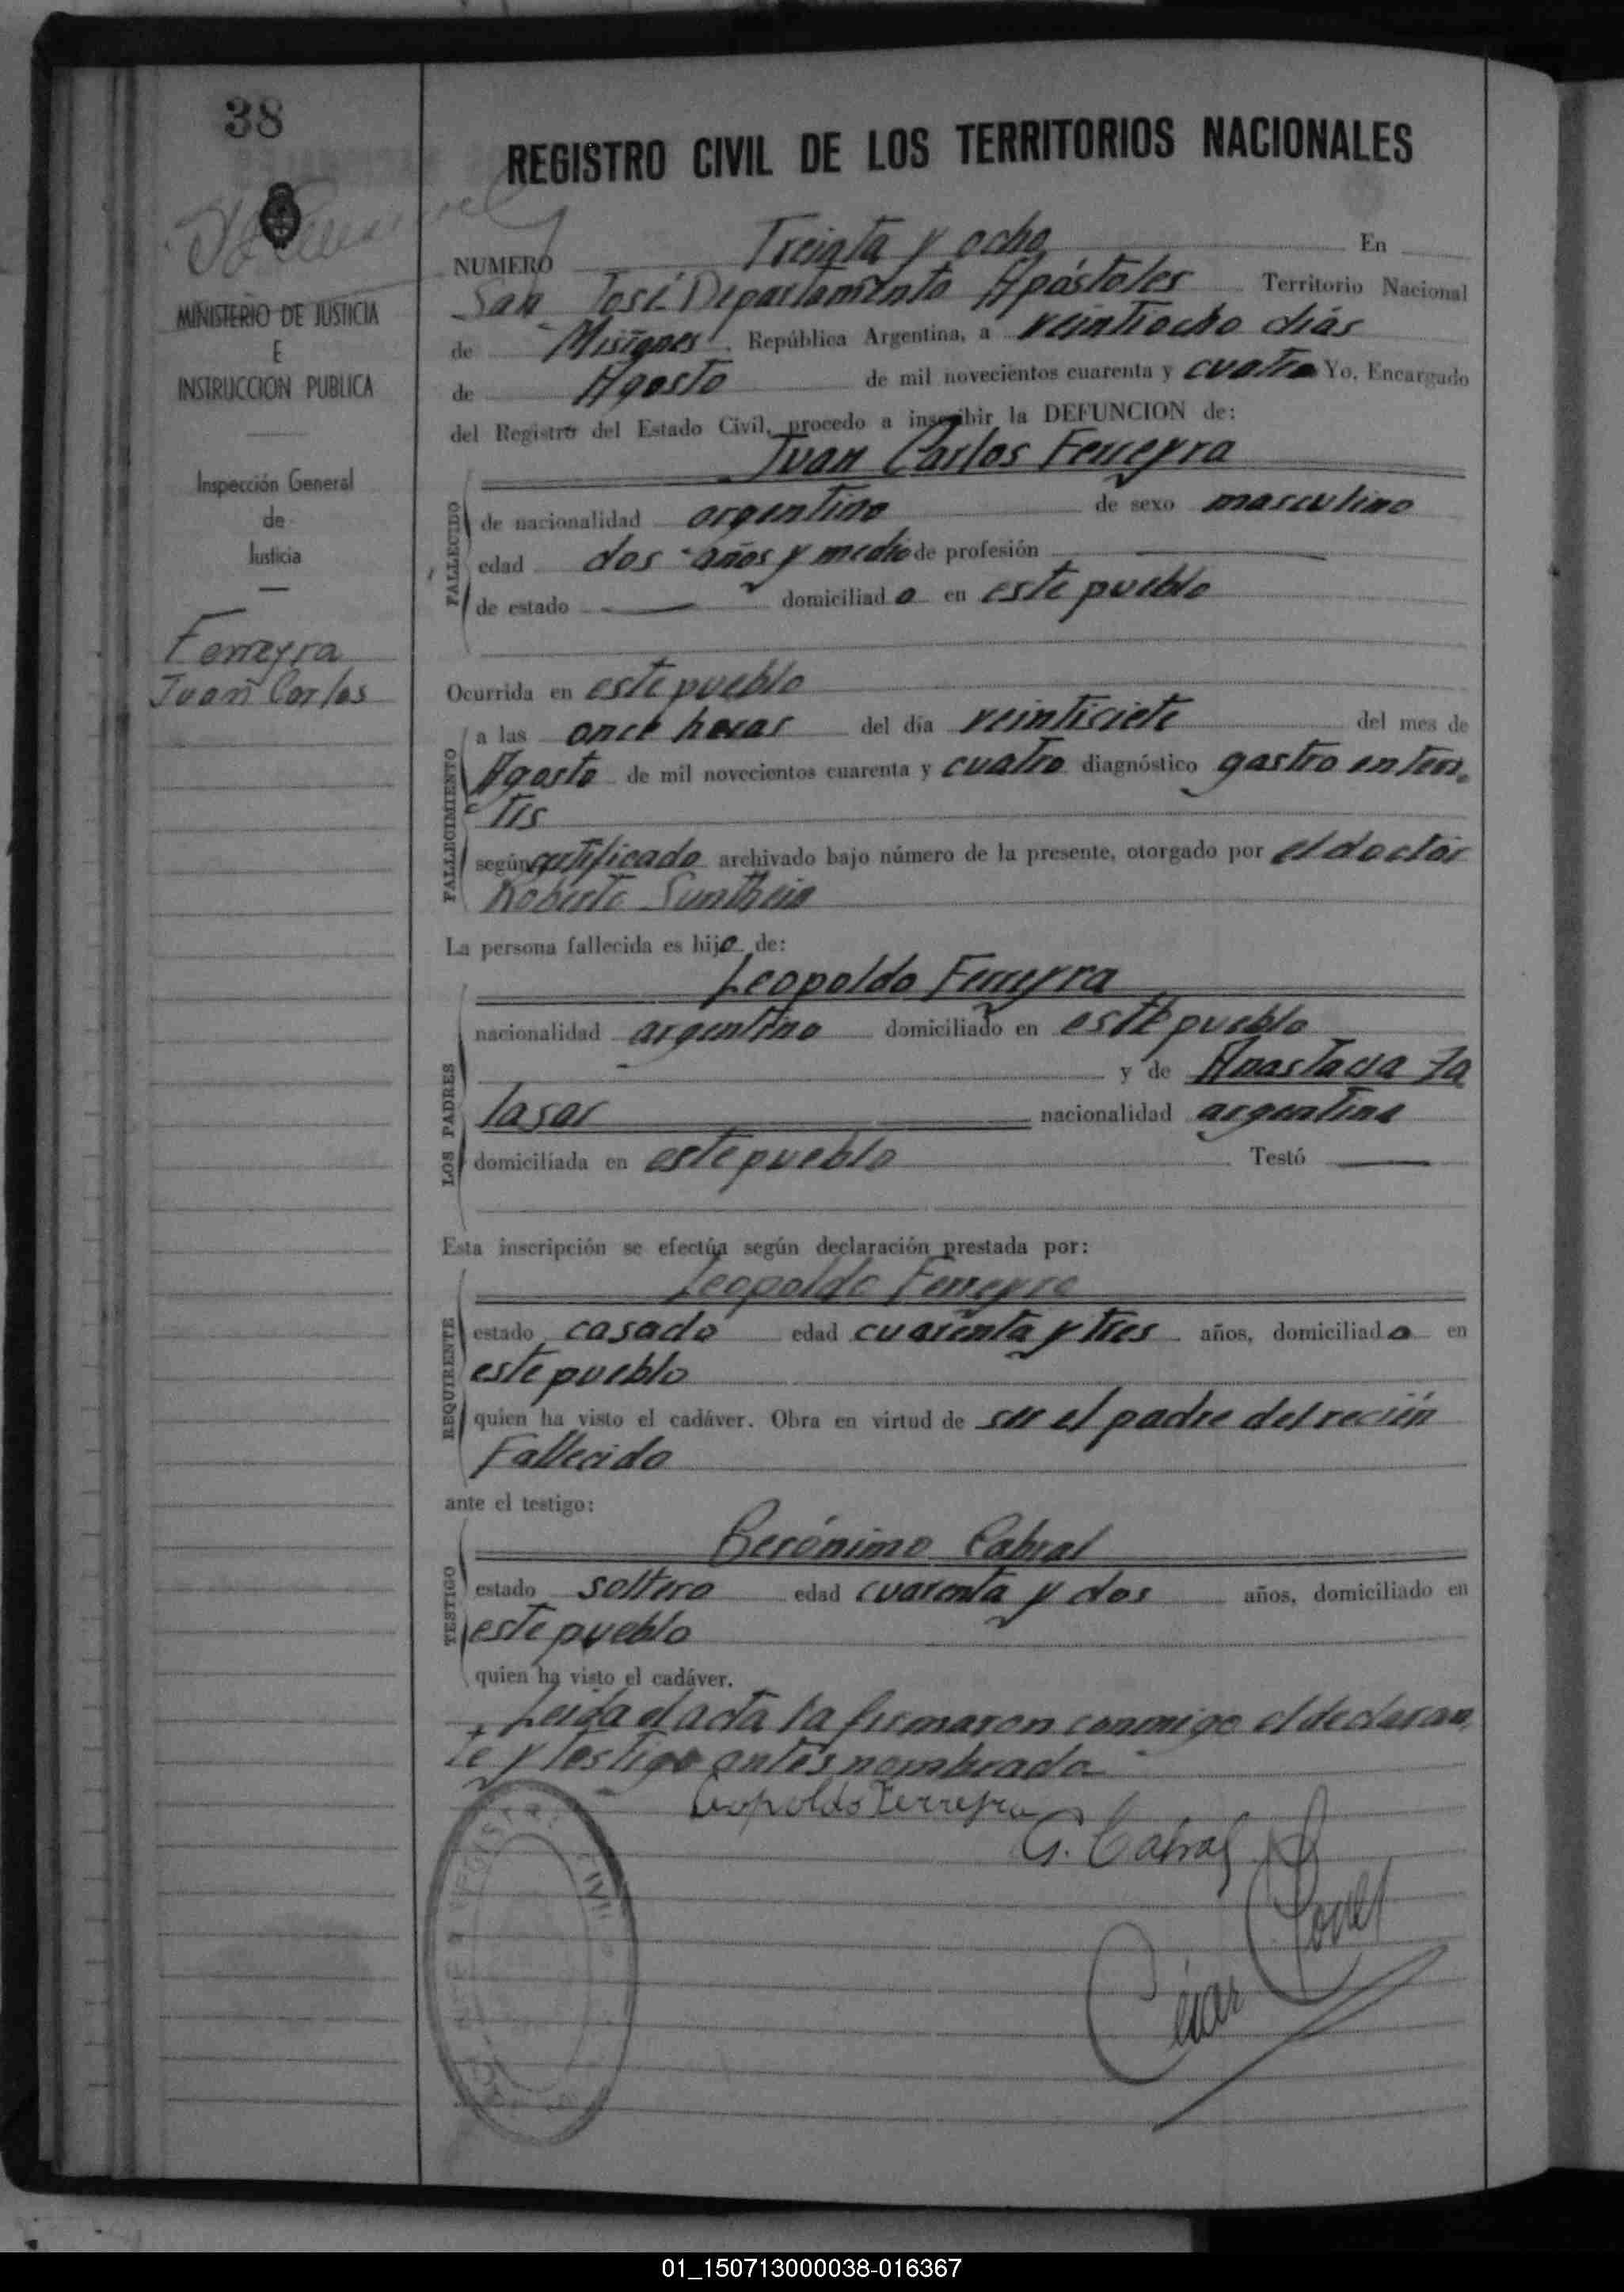 38
REGISTRO CIVIL DE LOS TERRITORIOS NACIONALES
MINISTERIO DE JUSTICIA
E
INSTRUCCION PUBLICA
Inspección General
de
Justicia
Ferreyra
Juan Carlos
NUMERO Treinta y ocho En
San José Departamento Apóstoles Territorio Nacional
de Misiones República Argentina, a veintiocho días
de Agosto de mil novecientos cuarenta y cuatro Yo, Encargado
del Registro del Estado Civil, procedo a inscribir la DEFUNCION de:
Juan Carlos Ferreyra
FALLECIDO
de nacionalidad argentino de sexo masculino
edad dos años y medio de profesión —
de estado — domiciliado en este pueblo
Ocurrida en este pueblo
FALLECIMIENTO
a las once horas del día veintisiete del mes de
Agosto de mil novecientos cuarenta y cuatro diagnóstico gastro enteri-
tis
según certificado archivado bajo número de la presente, otorgado por el doctor
Roberto
La persona fallecida es hijo de:
Leopoldo Ferreyra
LOS PADRES
nacionalidad argentino domiciliado en este pueblo
y de Anastacia Za
lasar nacionalidad argentina
domiciliada en este pueblo Testó —
Esta inscripción se efectúa según declaración prestada por:
Leopoldo Ferreyra
REQUIRENTE
estado casado edad cuarenta y tres años, domiciliado en
este pueblo
quien ha visto el cadáver. Obra en virtud de ser el padre del recién
Fallecido
ante el testigo:
Gerónimo Cabral
TESTIGO
estado soltero edad cuarenta y dos años, domiciliado en
este pueblo
quien ha visto el cadáver.
Leida el acta la firmaron conmigo el declaran
te y testigo antes nombrado
Leopoldo Ferreyra
G. Cabral
César
REGISTRO CIVIL
01_150713000038-016367